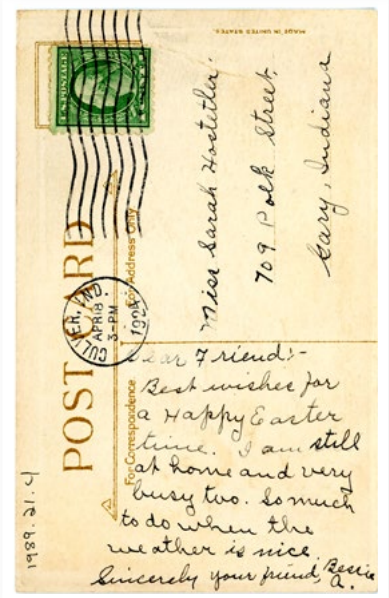 MADE IN UNITED STATES.
U.S. POSTAGE
CULVER, IND
APR 18
3-PM
1924
POST CARD
For Address Only
Miss Sarah Hostetler.
709 Polk Street,
Gary, Indiana
For Correspondence
Dear Friend:-
Best wishes for
a Happy Easter
time. I am still
at home and very
busy too. So much
to do when the
weather is nice.
Sincerely your friend, Bessie
A.
1989.21.4